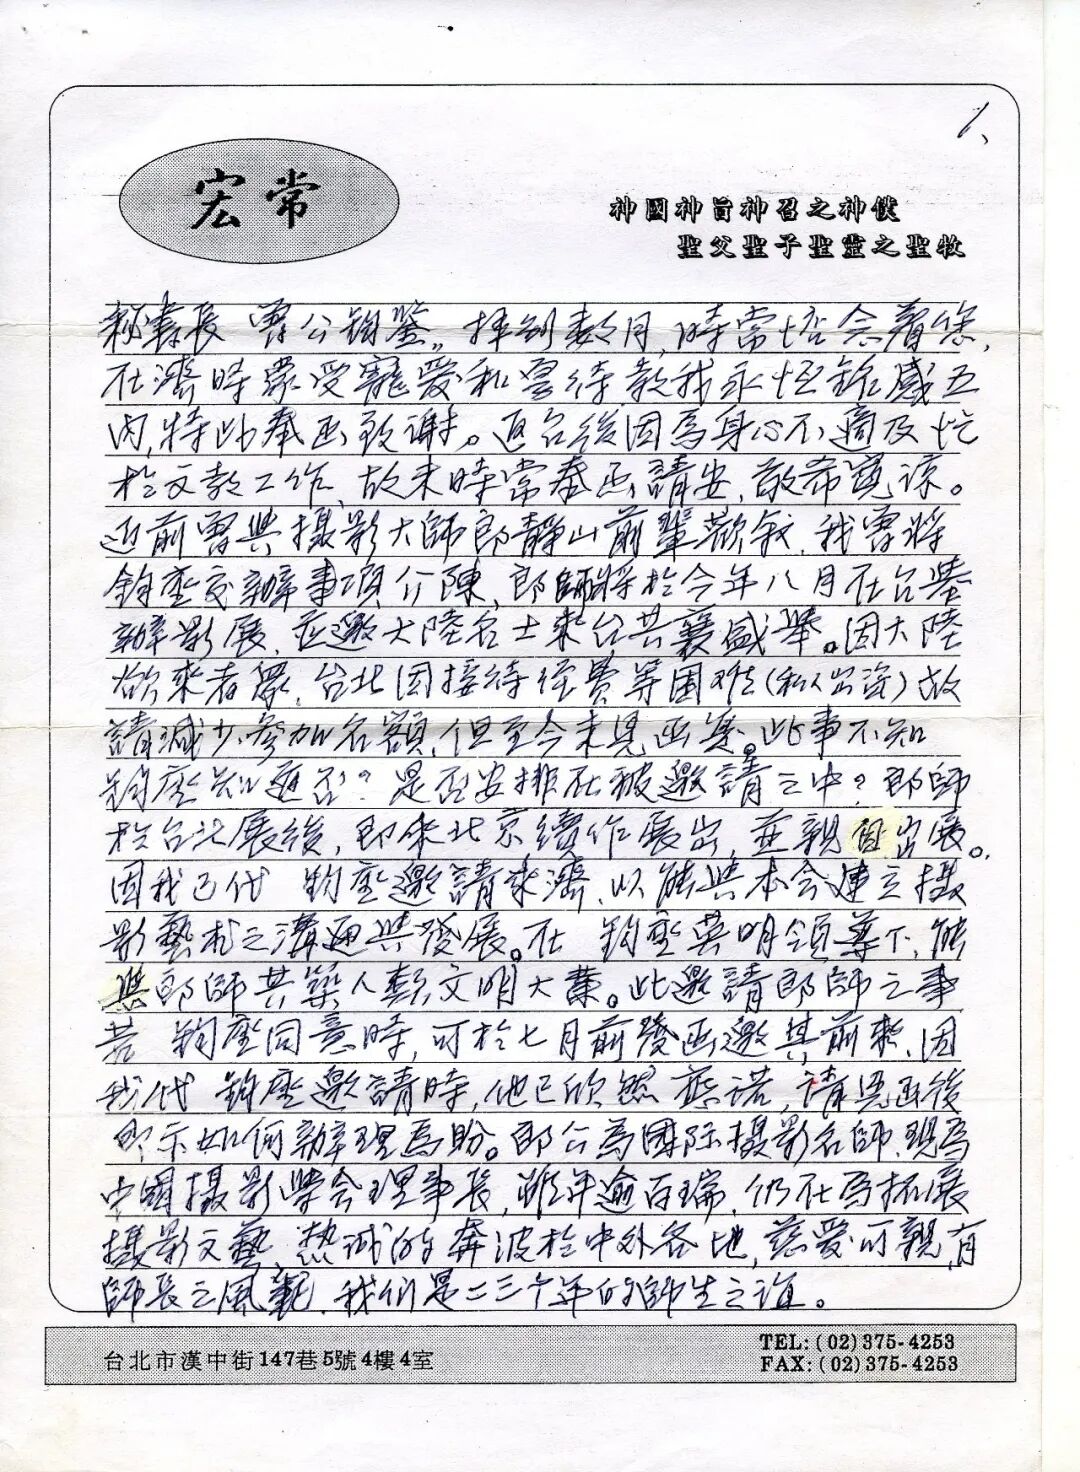 1、
宏常
神國神旨神召之神僕
聖父聖子聖靈之聖牧
秘書長 曹公鈞鑒。拜別數月,時常懷念著您,
在濟時蒙受寵愛和厚待款我永恆銘感五
內,特此奉函致謝。返台後因為身心不適及忙
於文教工作,故未時常奉函請安,敬希寬諒。
近前曾與攝影大師郎靜山前輩歡敘,我曾將
鈞座交辦事項介陳,郎師將於今年八月在台舉
辦影展,並邀大陸名士來台共襄盛舉。因大陸
欲來者眾,台北因接待經費等困难(私人出資)故
請減少參加名額,但至今未見函來。此事不知
鈞座知悉否?是否安排在被邀請之中?郎師
於台北展後,即來北京續作展出,並親自出展。
因我已代 鈞座邀請來濟,以能與本會建立攝
影藝術之溝通與發展。在 鈞座英明領導下,能
與郎師共築人類文明大業。此邀請郎師之事
若 鈞座同意時,可於七月前發函邀其前來,因
我代 鈞座邀請時,他已欣然應諾,請見函後
即示如何辦理為盼。郎公為國际攝影名師,現為
中國攝影學會理事長,雖年逾百瑞,仍在為拓展
攝影文藝,热誠的奔波於中外各地,慈愛可親,有
師長之風範,我們是二三十年的師生之誼。
台北市漢中街147巷5號4樓4室
TEL:(02)375-4253
FAX:(02)375-4253